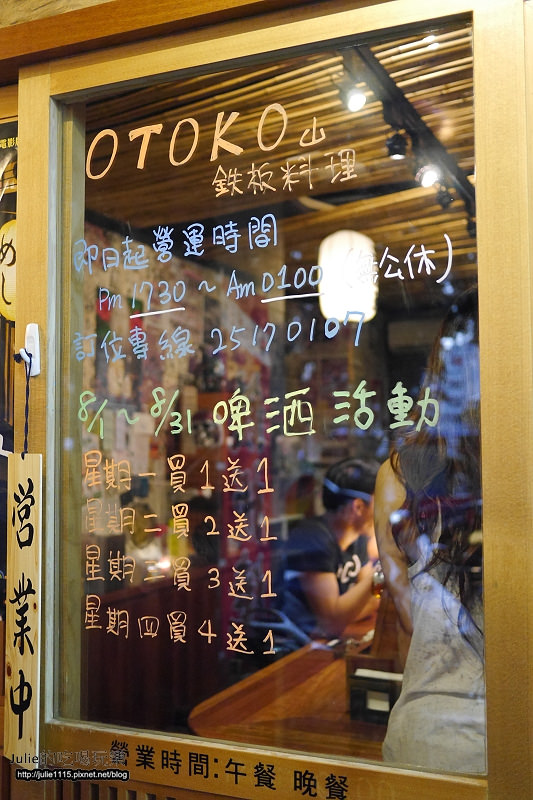 OTOKO山
鉄板料理
即日起營運時間
Pm 1730 ~ Am 0100 (無公休)
訂位專線 25170107
8/1 ~ 8/31 啤酒活動
星期一買1送1
星期二買2送1
星期三買3送1
星期四買4送1
めし
営業中
營業時間:午餐 晚餐
Julie的吃喝玩樂
http://julie1115.pixnet.net/blog